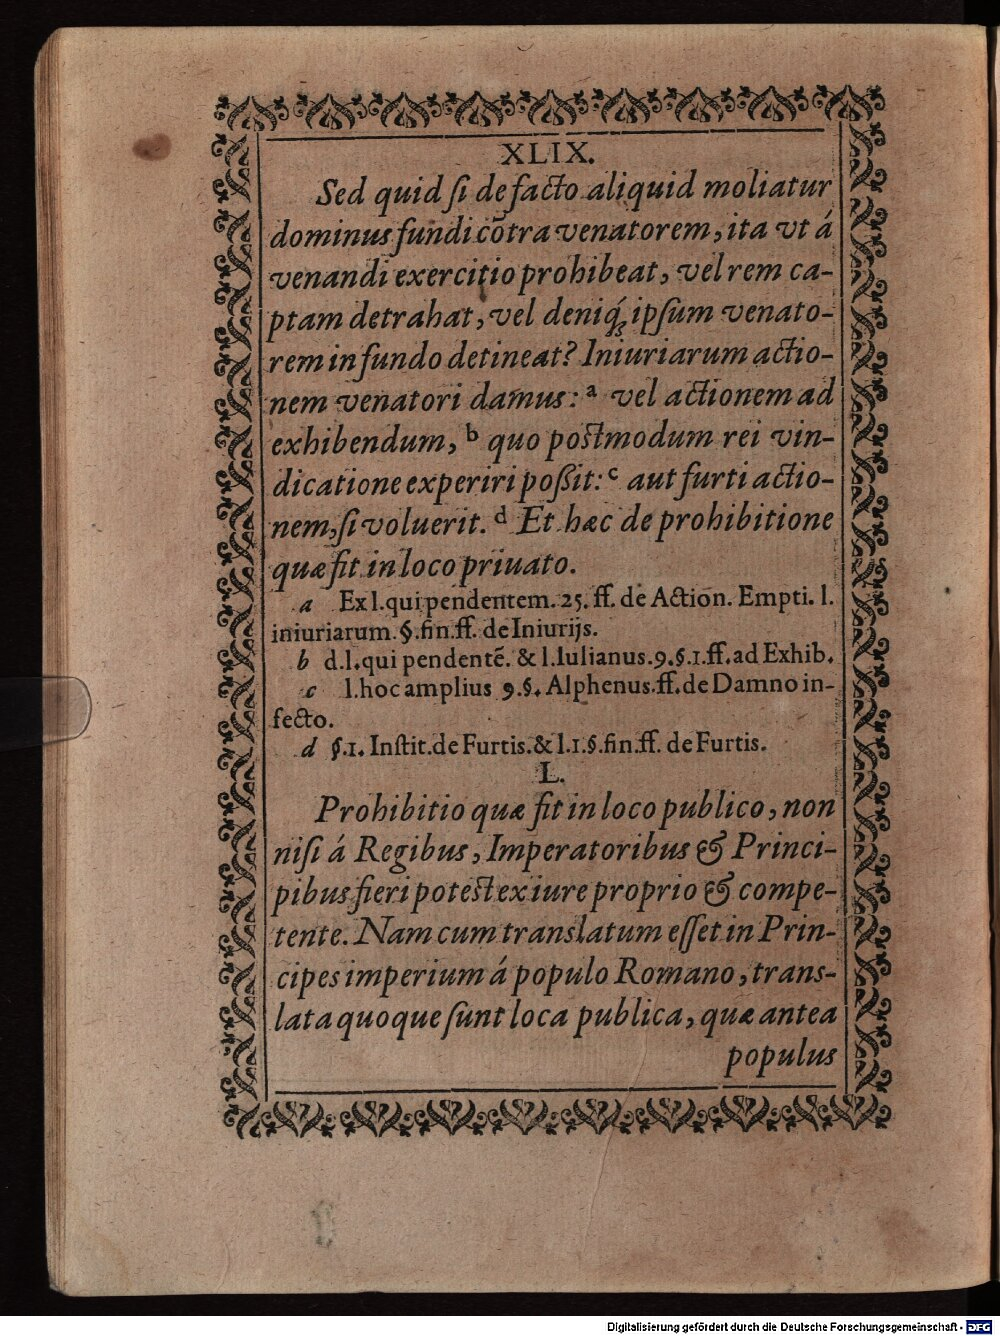 XLIX.
Sed quid ſi de facto aliquid moliatur
dominus fundi cõtra venatorem, ita vt á
venandi exercitio prohibeat, vel rem ca-
ptam detrahat, vel deniq́ꝫ ipſum venato-
rem in fundo detineat? Iniuriarum actio-
nem venatori damus: a vel actionem ad
exhibendum, b quo poſtmodum rei vin-
dicatione experiri poßit: c aut furti actio-
nem, ſi voluerit. d Et hæc de prohibitione
quæ fit in loco priuato.
a Ex l. qui pendentem. 25. ff. de Action. Empti. l.
iniuriarum. §. fin. ff. de Iniurijs.
b d. l. qui pendentẽ. & l. Iulianus. 9. §. 1. ff. ad Exhib.
c l. hoc amplius 9. §. Alphenus. ff. de Damno in-
fecto.
d §. 1. Inſtit. de Furtis. & l. 1. §. fin. ff. de Furtis.
L.
Prohibitio quæ fit in loco publico, non
niſi á Regibus, Imperatoribus & Princi-
pibus fieri poteſt ex iure proprio & compe-
tente. Nam cum translatum eſſet in Prin-
cipes imperium á populo Romano, trans-
lata quoque ſunt loca publica, quæ antea
populus
Digitalisierung gefördert durch die Deutsche Forschungsgemeinschaft - DFG